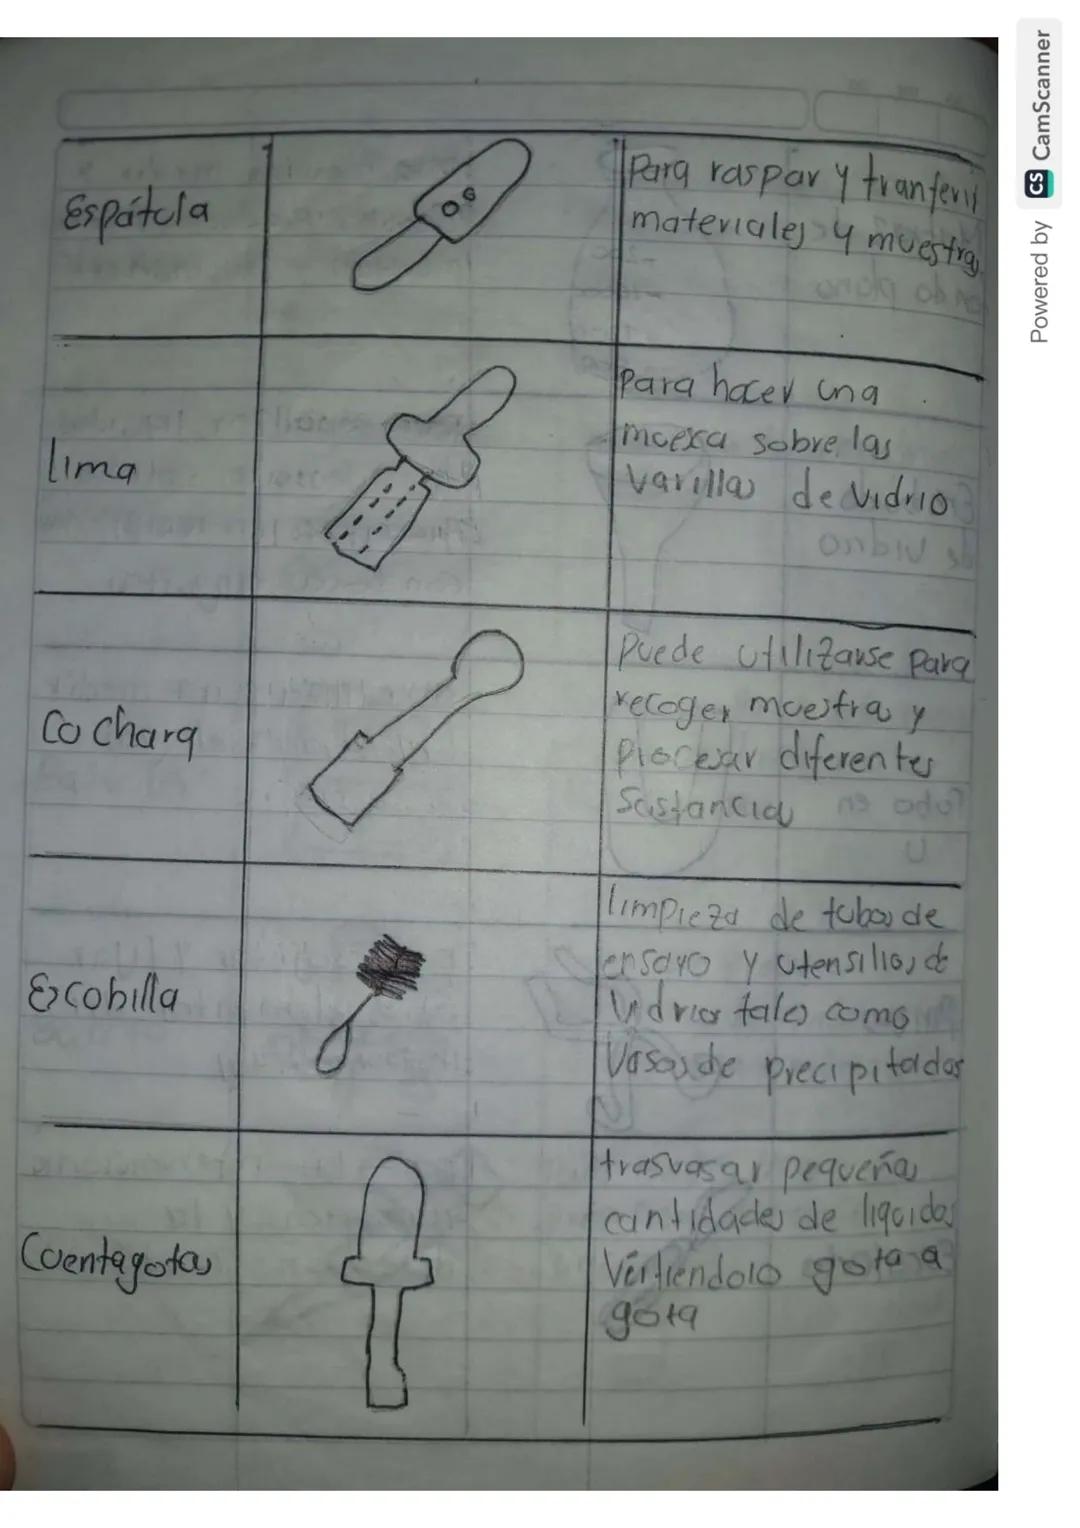 Espátula
Para raspar y tranferir
materiales y muestras
lima
Para hacer una
muexa sobre las
varillas de vidrio
Cucharq
Puede utilizarse para
recoger muestras y
procesar diferentes
Sustancias
Escobilla
limpieza de tubos de
ensayo y utensilios de
Vidrios tales como
Vasos de precipitados
Cuentagotas
trasvasar pequeña
cantidades de liquidos
Vertiendolo gota a
gota
Powered by CS CamScanner